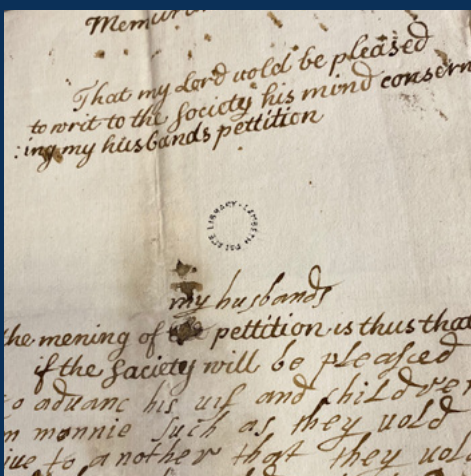 That my Lord uold be pleased
to writ to the society his mind consern
:ing my husbands pettition
LAMBETH PALACE LIBRARY
my husbands
the mening of pettition is thus that
if the society will be pleased
to aduanc his uif and children
monnie such as they uold
to another that they uold